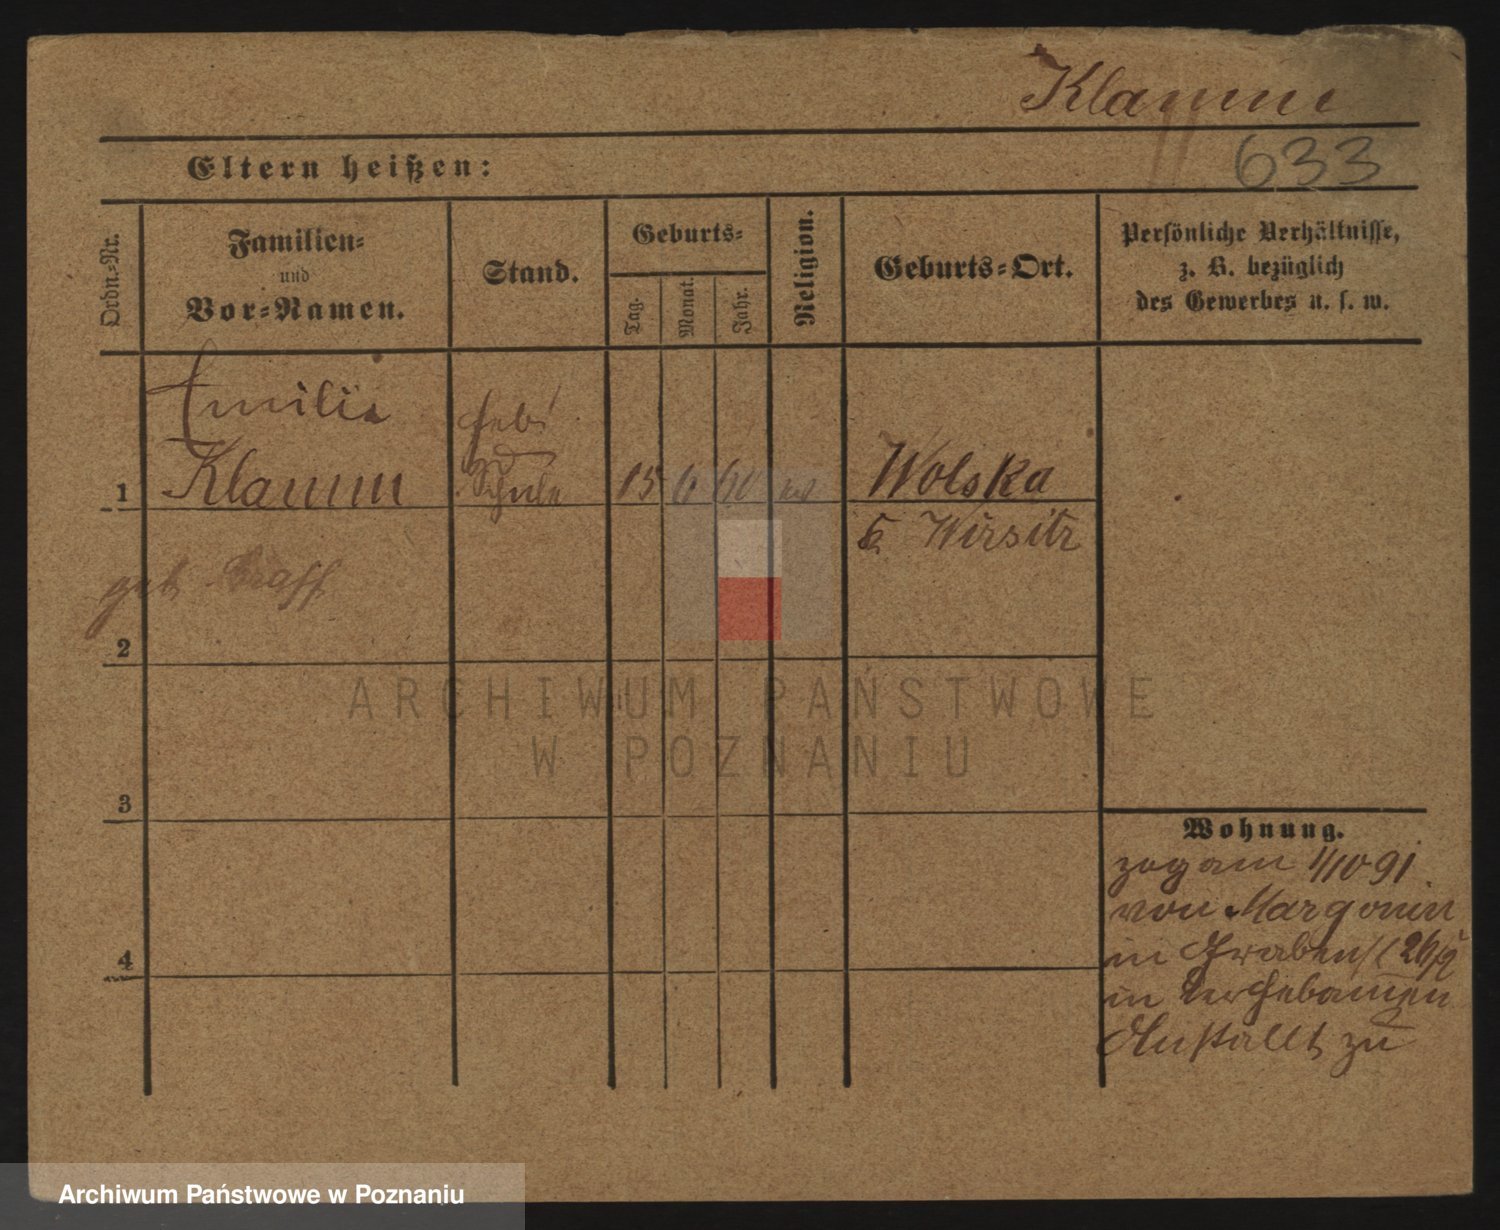 Klamm
633
Eltern heißen:
Ordn.-Nr.
Familien-
und
Vor-Namen.
Stand.
Geburts-
Tag.
Monat.
Jahr.
Religion.
Geburts-Ort.
Persönliche Verhältnisse,
z. B. bezüglich
des Gewerbes u. s. w.
Emilie
Heb.
Schule
1 Klamm 15 6 60 Wolska
Wirsitz
geb
2
3
4
Wohnung.
zog am 1/10 91
von Margonin
in Graben
in der Hebammen
Anstallt zu
ARCHIWUM PAŃSTWOWE
W POZNANIU
Archiwum Państwowe w Poznaniu